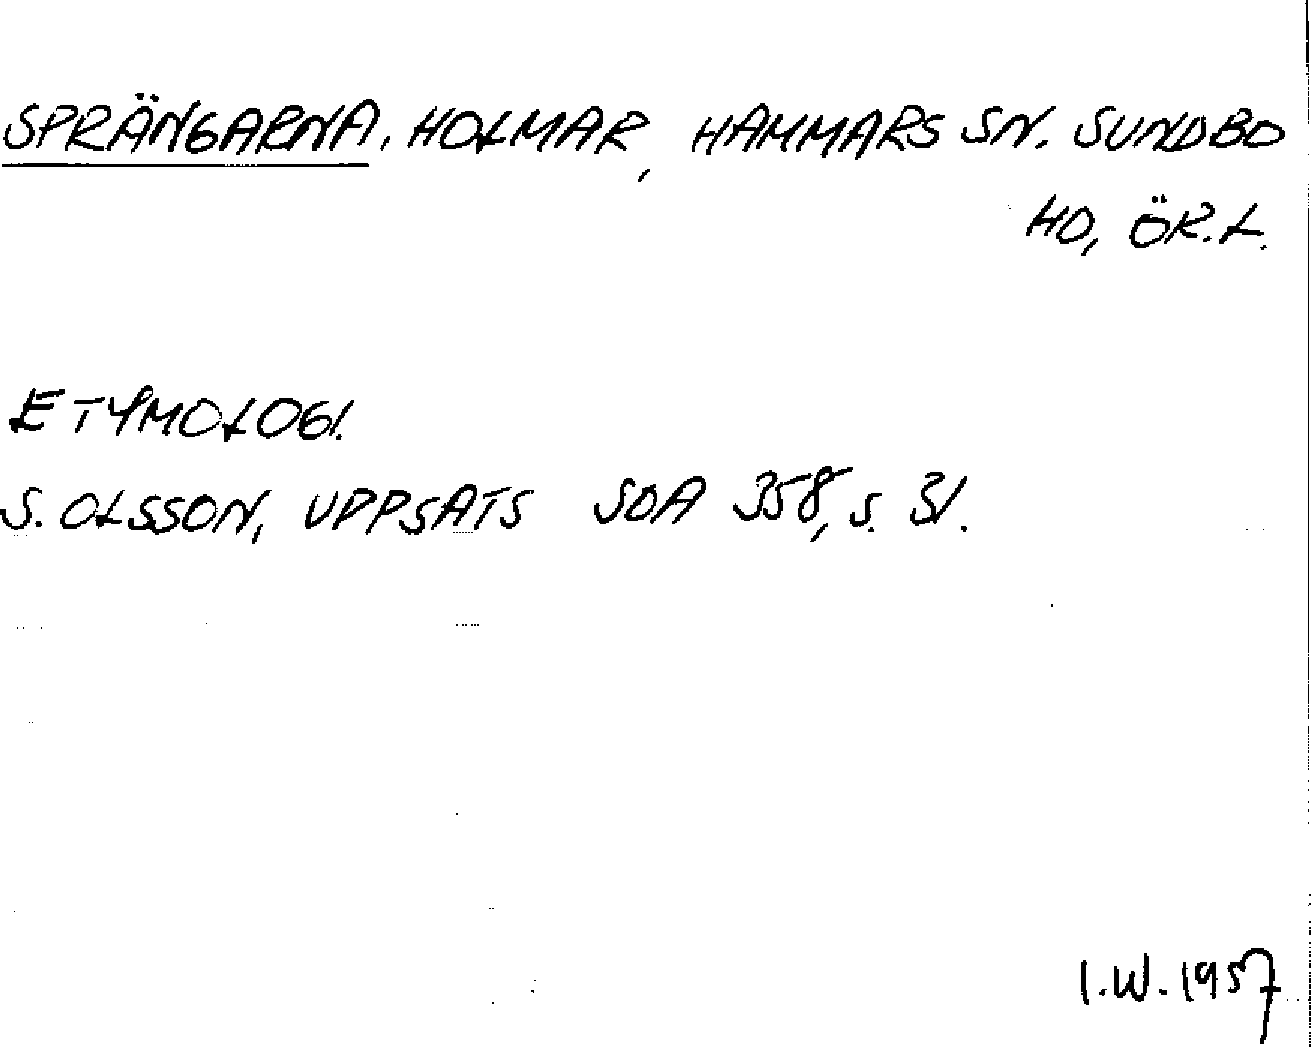 SPRÄNGARNA, HOLMAR, HAMMARS SN. SUNDBO
HD, ÖR.L.
ETYMOLOGI.
S. OLSSON, UPPSATS SOA 358, S. 31.
I.W. 1957